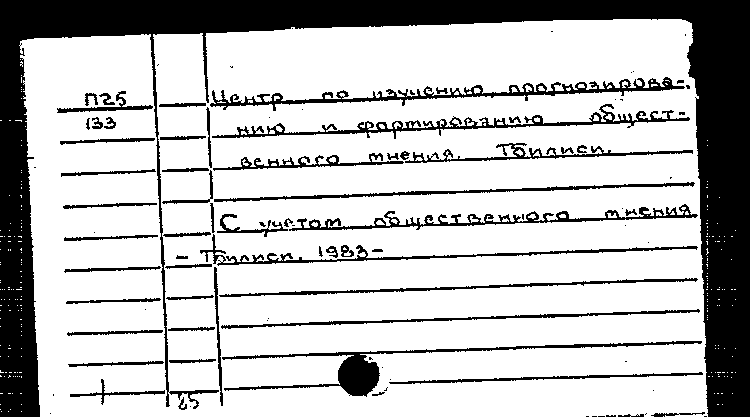 П25 Центр по изучению, прогнозирова-
133 нию и формированию общест-
венного мнения. Тбилиси.
С учетом общественного мнения
- Тбилиси. 1983-
85